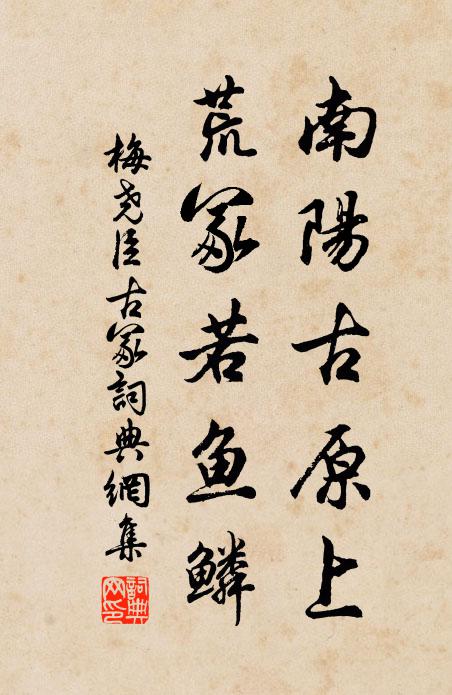 南陽古原上
荒冢若魚鱗
梅堯臣古冢詞典網集
詞典網印